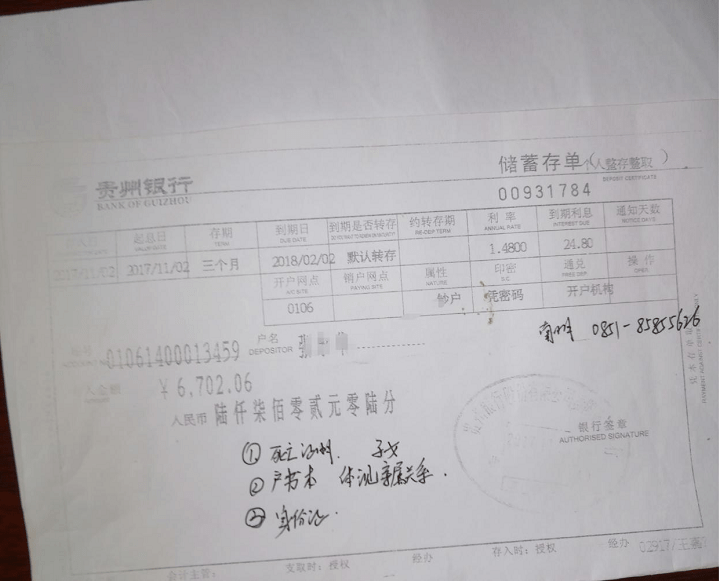 贵州银行
BANK OF GUIZHOU
储蓄存单(个人整存整取)
DEPOSIT CERTIFICATE
00931784
起息日 存期 到期日 到期是否转存 约转存期 利率 到期利息 通知天数
VALUE DATE TERM DUE DATE RE-DEP TERM ANNUAL RATE INTEREST DUE NOTICE DAYS
2017/11/02 2017/11/02 三个月 2018/02/02 默认转存 1.4800 24.80
开户网点 销户网点 属性 印密 通兑 操作
A/C SITE PAYING SITE NATURE
0106 钞户 凭密码 开户机构
南明 0851-85855626
01061400013459 户名 DEPOSITOR 张
金额 ¥6,702.06
人民币 陆仟柒佰零贰元零陆分
银行签章
AUTHORISED SIGNATURE
① 死亡证明. 子女
② 户口本 体现亲属关系.
③ 身份证.
会计主管: 支取时:授权 经办 存入时:授权 经办 02917/王